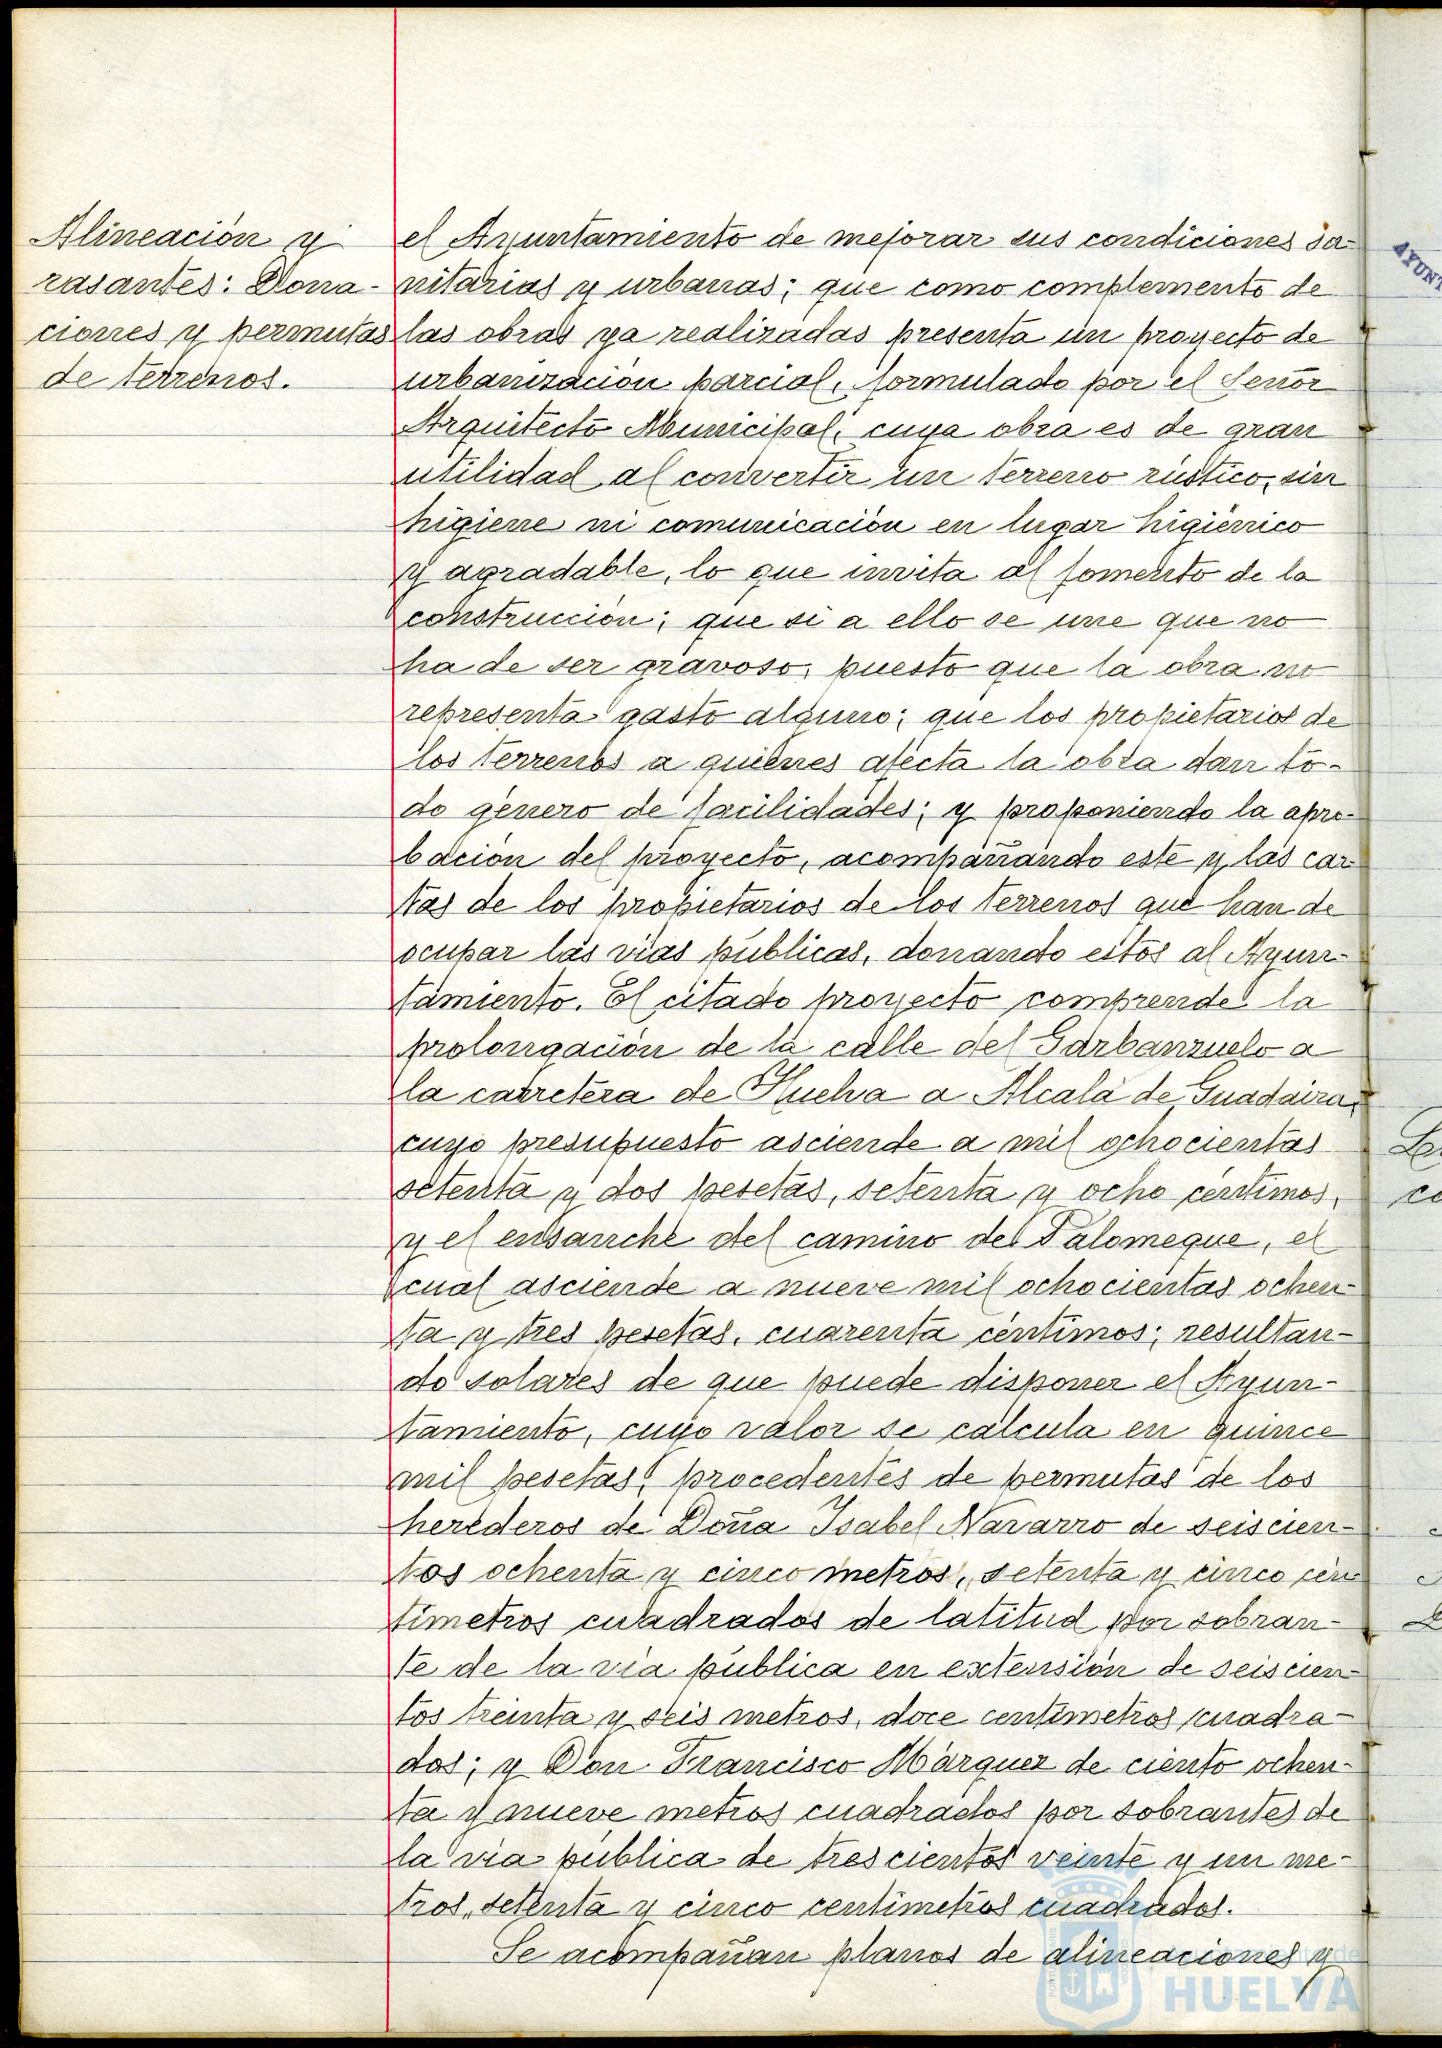 Alineación y
rasantes: Dona-
ciones y permutas
de terrenos.
el Ayuntamiento de mejorar sus condiciones sa-
nitarias y urbanas; que como complemento de
las obras ya realizadas presenta un proyecto de
urbanización parcial, formulado por el Señor
Arquitecto Municipal, cuya obra es de gran
utilidad al convertir un terreno rústico, sin
higiene ni comunicación en lugar higiénico
y agradable, lo que invita al fomento de la
construcción; que si a ello se une que no
ha de ser gravoso, puesto que la obra no
representa gasto alguno; que los propietarios de
los terrenos a quienes afecta la obra dan to-
do género de facilidades; y proponiendo la apro-
bación del proyecto, acompañando este y las car-
tas de los propietarios de los terrenos que han de
ocupar las vías públicas, donando estos al Ayun-
tamiento. El citado proyecto comprende la
prolongación de la calle del Garbanzuelo a
la carretera de Huelva a Alcalá de Guadaira,
cuyo presupuesto asciende a mil ochocientas
setenta y dos pesetas, setenta y ocho céntimos,
y el ensanche del camino del Palomeque, el
cual asciende a nueve mil ochocientas ochen-
ta y tres pesetas, cuarenta céntimos; resultan-
do solares de que puede disponer el Ayun-
tamiento, cuyo valor se calcula en quince
mil pesetas, procedentes de permutas de los
herederos de Doña Isabel Navarro de seiscien-
tos ochenta y cinco metros, setenta y cinco cen-
tímetros cuadrados de latitud por sobran-
te de la vía pública en extensión de seiscien-
tos treinta y seis metros, doce centímetros cuadra-
dos; y Don Francisco Márquez de ciento ochen-
ta y nueve metros cuadrados por sobrantes de
la vía pública de trescientos veinte y un me-
tros, setenta y cinco centímetros cuadrados.
Se acompañan planos de alineaciones y
AYUNT
HUELVA